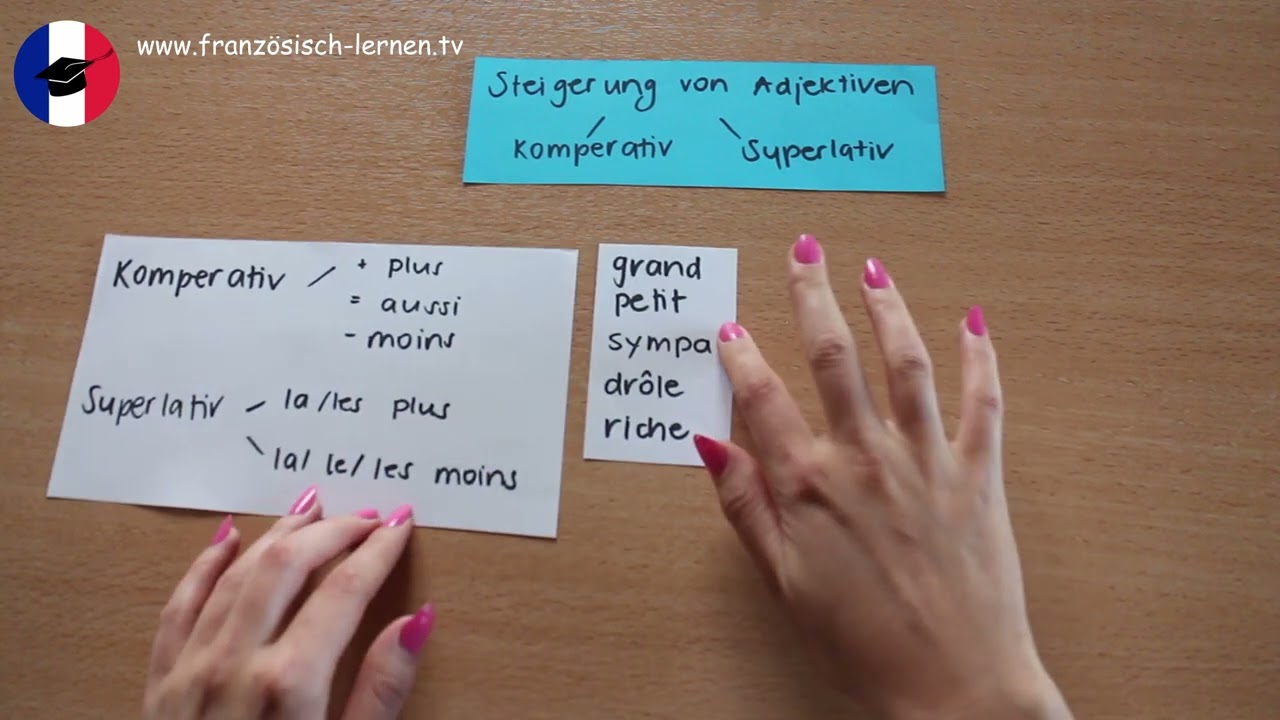 www.französisch-lernen.tv
Steigerung von Adjektiven
Komperativ Superlativ
Komperativ + plus
= aussi
- moins
Superlativ - la/les plus
la/ le/ les moins
grand
petit
sympa
drôle
riche